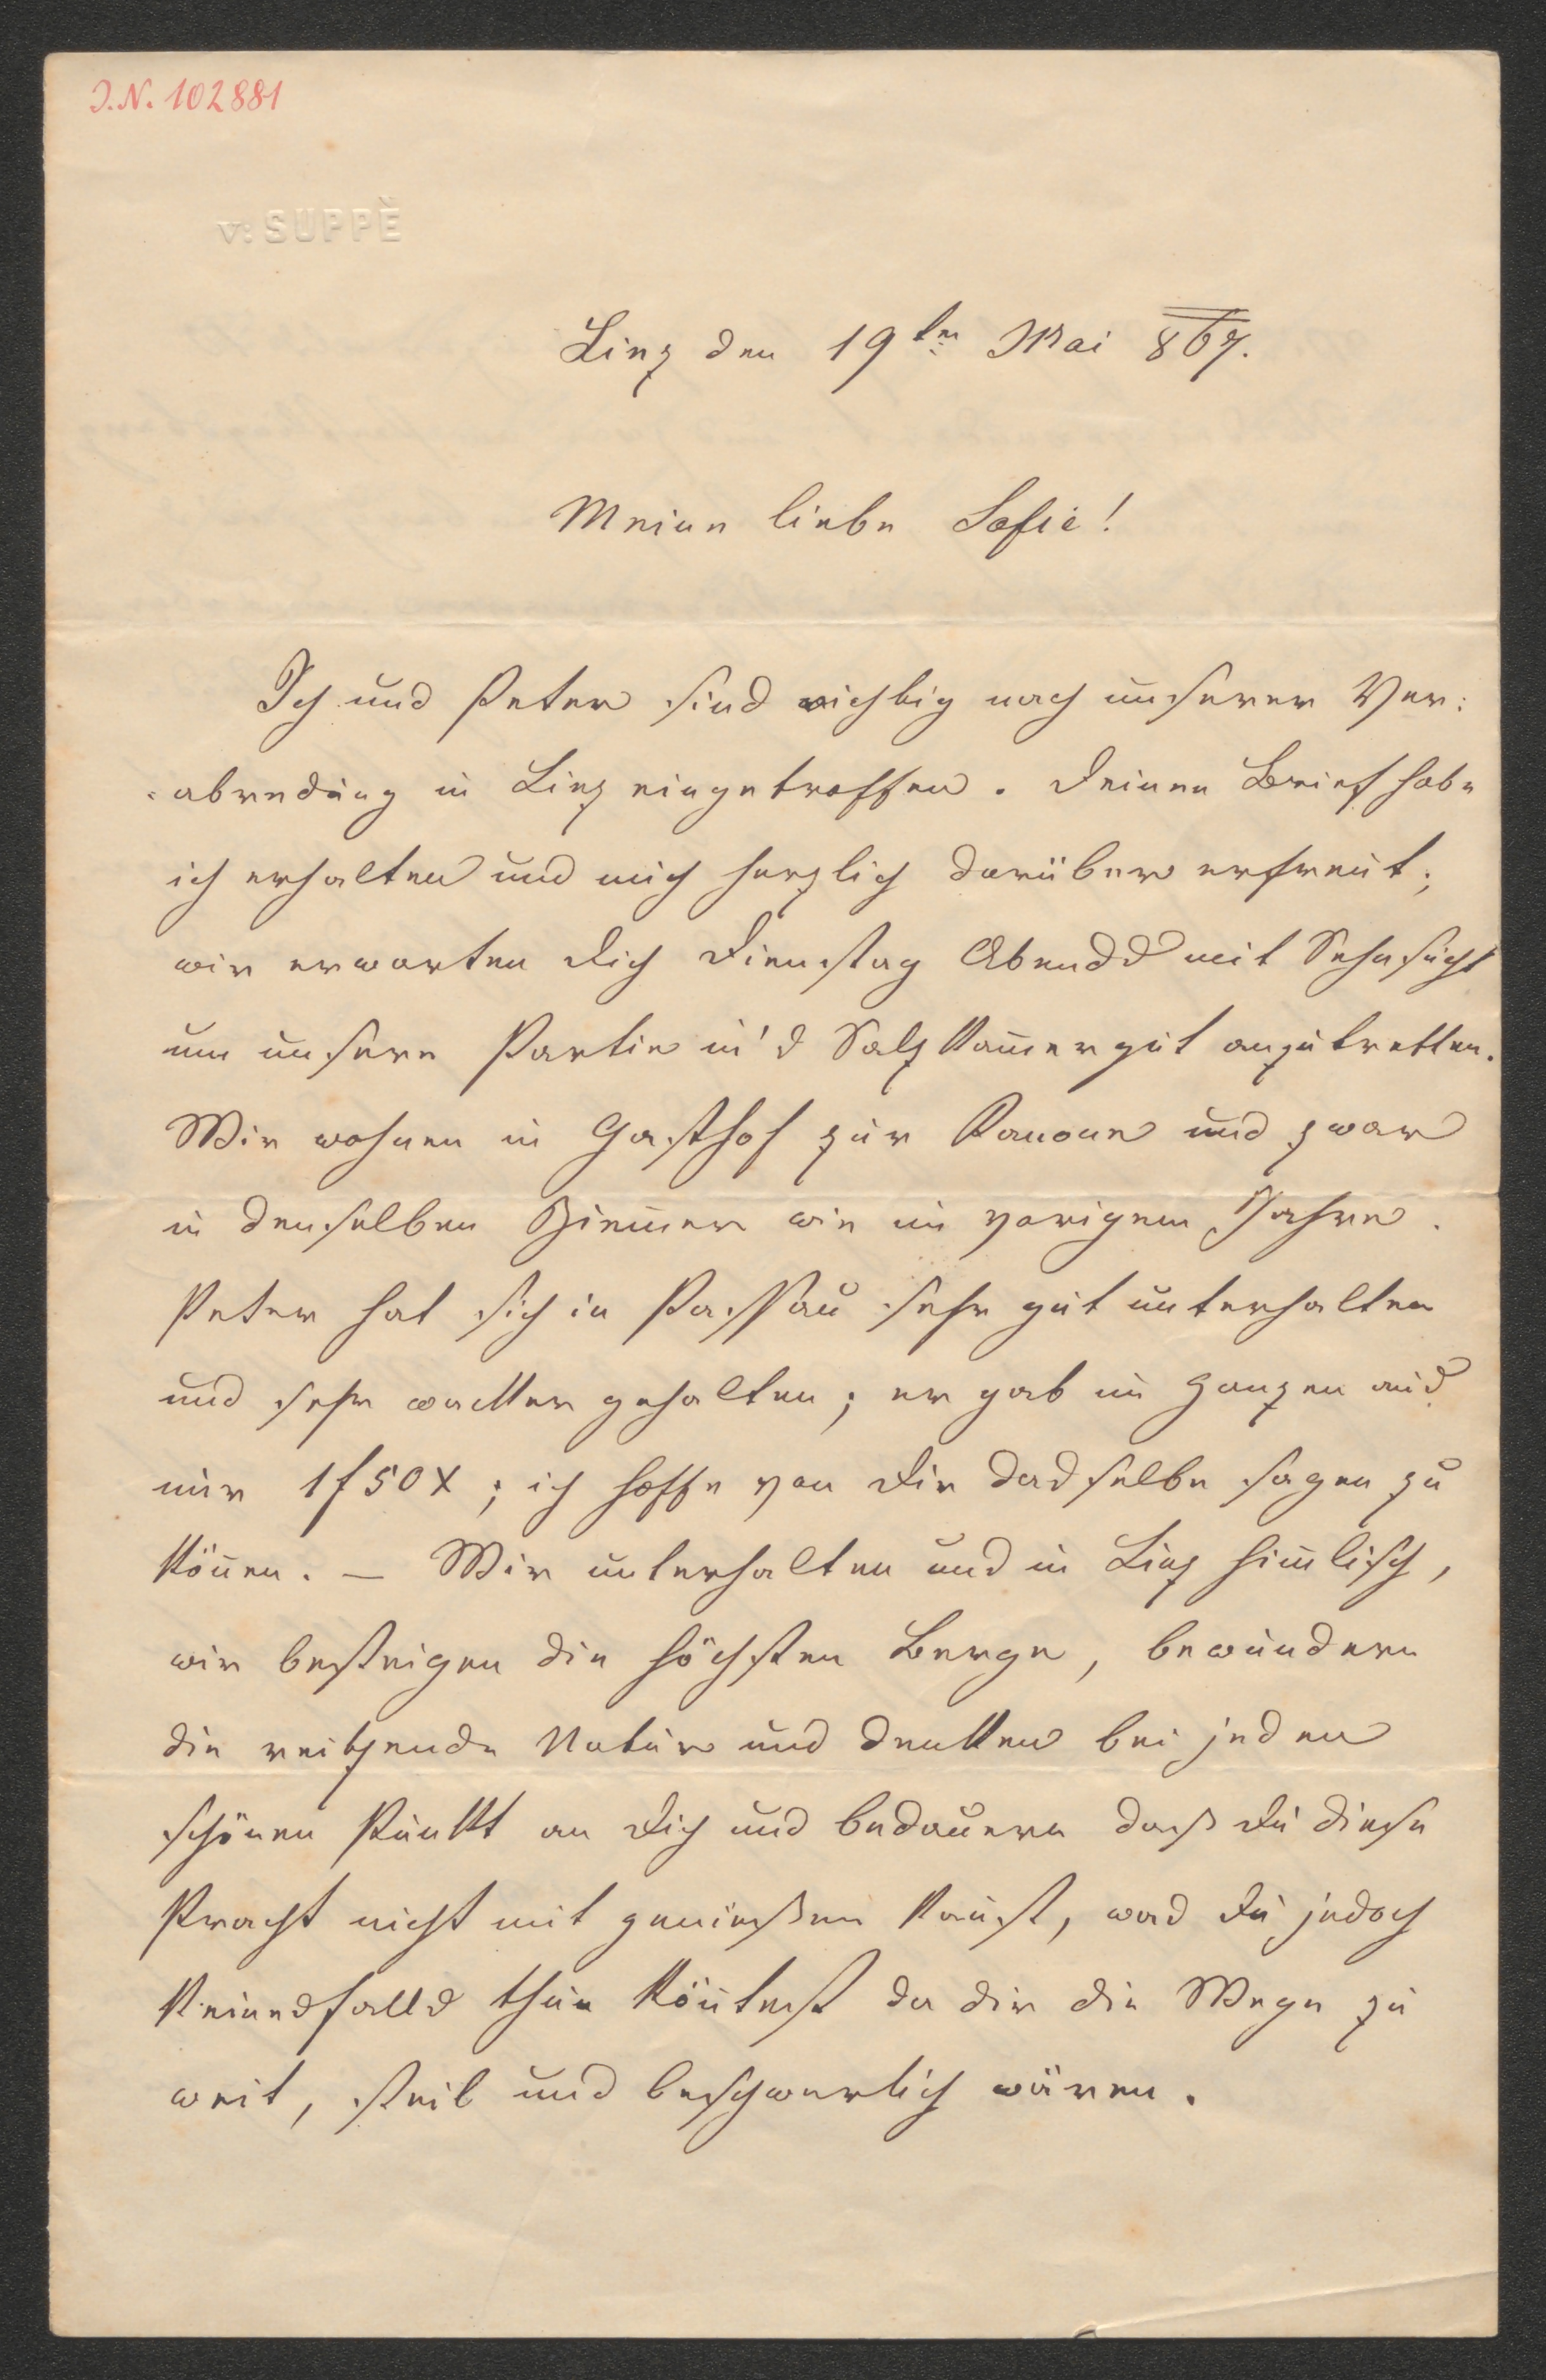 J.N. 102881
v: SUPPÈ
Linz den 19ten Mai 867.
Meine liebe Sofie!
Ich und Peter sind richtig nach unserer Ver:
:abredung in Linz eingetroffen. Deinen Brief habe
ich erhalten und mich herzlich darüber erfreut;
wir erwarten Dich Dienstag Abends mit Sehnsucht
um unsere Partie in's Salzkam̅ergut anzutretten.
Wir wohnen in Gasthof zur Kanone und zwar
in denselben Zim̅er wie im vorigem Jahre.
Peter hat sich in Passau sehr gut unterhalten
und sehr wacker gehalten; er gab im Ganzen aus
nur 1f50x; ich hoffe von Dir dasselbe sagen zu
kön̅en. — Wir unterhalten uns in Linz him̅lisch,
wir besteigen die höchsten Berge, bewundern
die reitzende Natur und denken bei jeden
schönen Punkt an Dich und bedauern dass Du diese
Pracht nicht mit geniessen kan̅st, was Du jedoch
keinesfalls thun kön̅test da dir die Wege zu
weit, steil und beschwerlich wären.